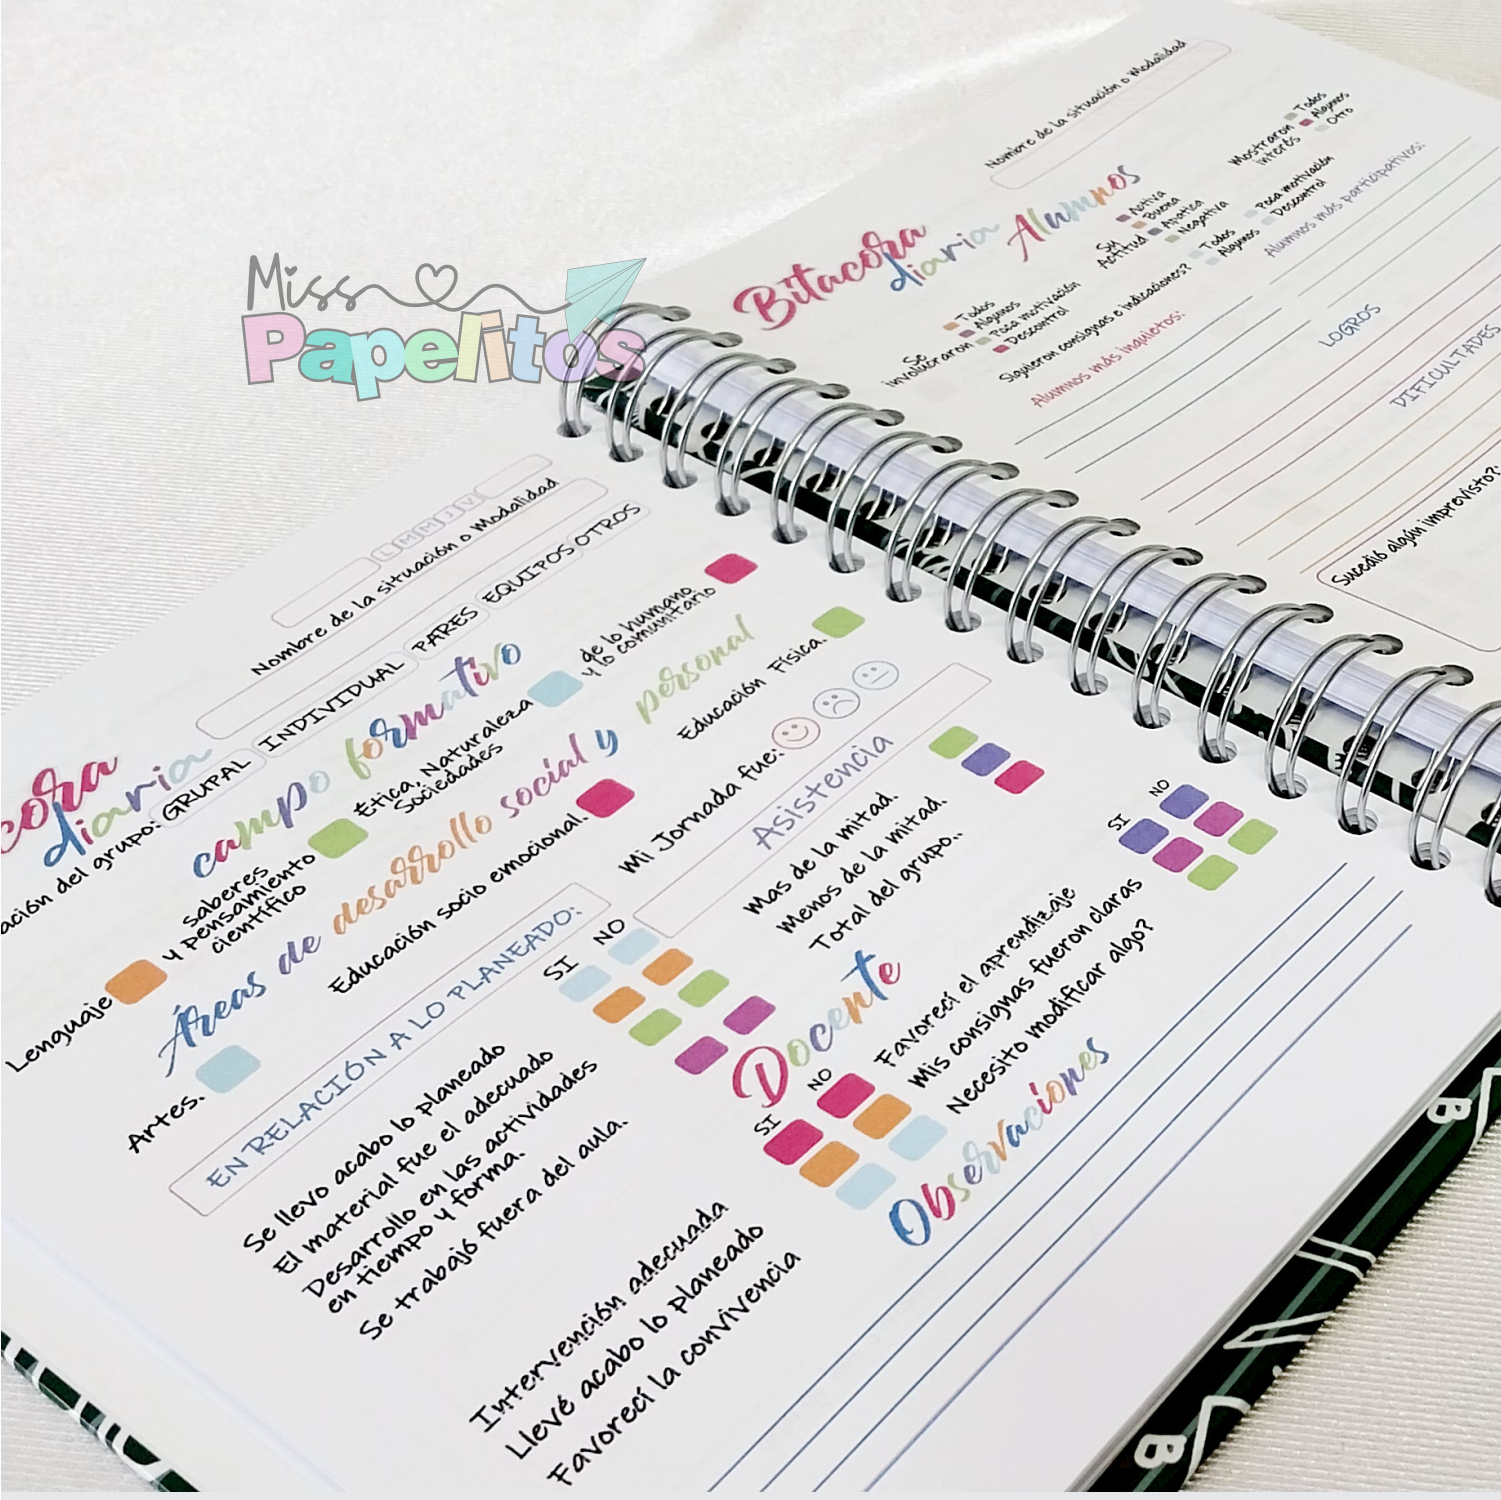 Miss
Papelitos
cora
diaria
L M M J V
Nombre de la situación o Modalidad
ación del grupo: GRUPAL INDIVIDUAL PARES EQUIPOS OTROS
campo formativo
Lenguaje
saberes
y pensamiento
científico
Ética, Naturaleza
Sociedades
de lo humano
y lo comunitario
Áreas de desarrollo social y personal
Artes.
Educación socio emocional.
Educación Física.
EN RELACIÓN A LO PLANEADO:
SI NO
Se llevo acabo lo planeado
El material fue el adecuado
Desarrollo en las actividades
en tiempo y forma.
Se trabajó fuera del aula.
Mi Jornada fue:
Asistencia
Mas de la mitad.
Menos de la mitad.
Total del grupo..
Docente
SI NO
Intervención adecuada
Llevé acabo lo planeado
Favorecí la convivencia
SI NO
Favorecí el aprendizaje
Mis consignas fueron claras
Necesito modificar algo?
Observaciones
Bitacora
diaria Alumnos
Nombre de la situación o Modalidad
Se
involucraron
Todos
Algunos
Poca motivación
Descontrol
Su
Actitud
Activa
Buena
Apatica
Negativa
Mostraron
interés
Todos
Algunos
Otro
Siguieron consignas e indicaciones?
Todos
Algunos
Poca motivación
Descontrol
Alumnos más inquietos:
Alumnos más participativos:
LOGROS
DIFICULTADES
Sucedió algún imprevisto?: